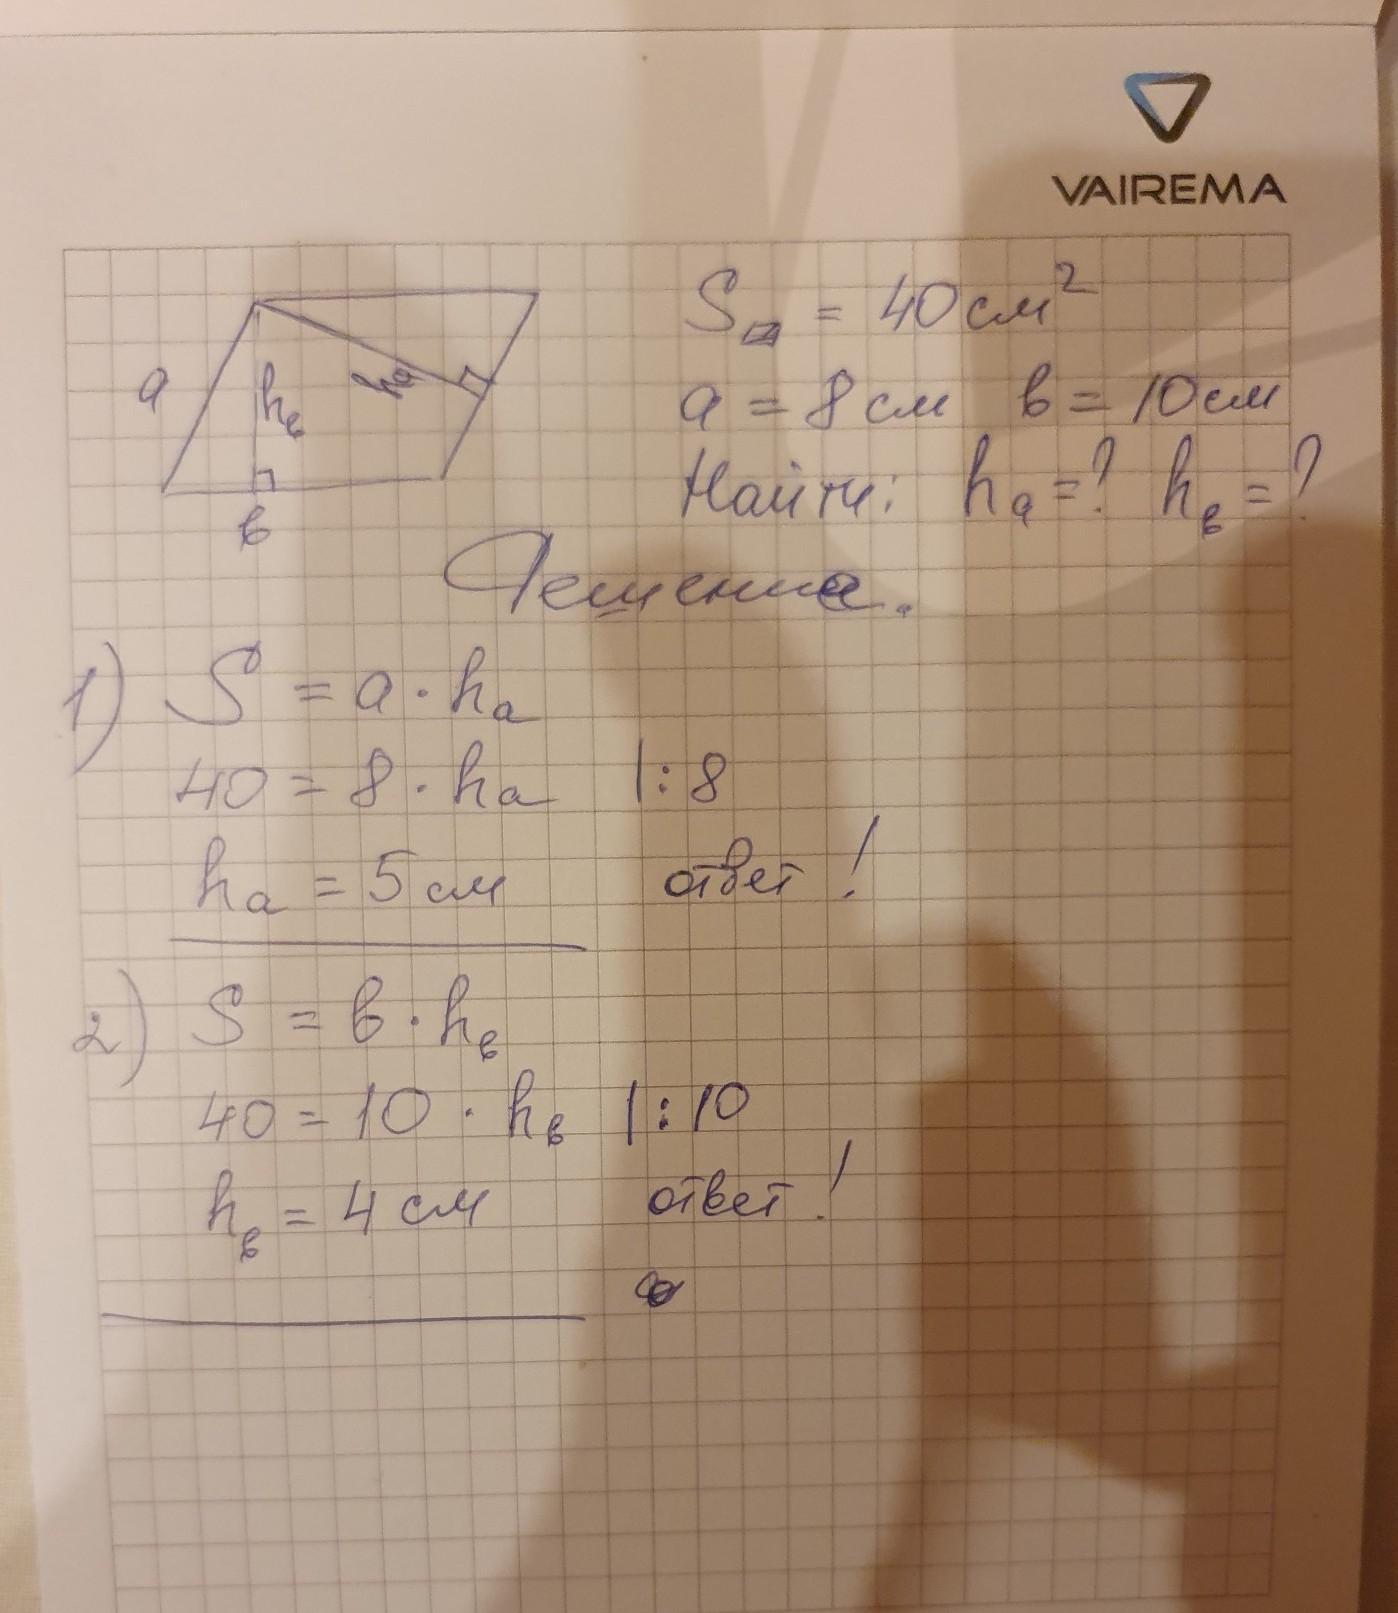 VAIREMA
a
hв
hа
в
S▱ = 40 см²
a = 8 см в = 10 см
Найти: hа = ? hв = ?
Решение.
1) S = a · hа
40 = 8 · hа |: 8
hа = 5 см ответ !
2) S = в · hв
40 = 10 · hв |: 10
hв = 4 см ответ !